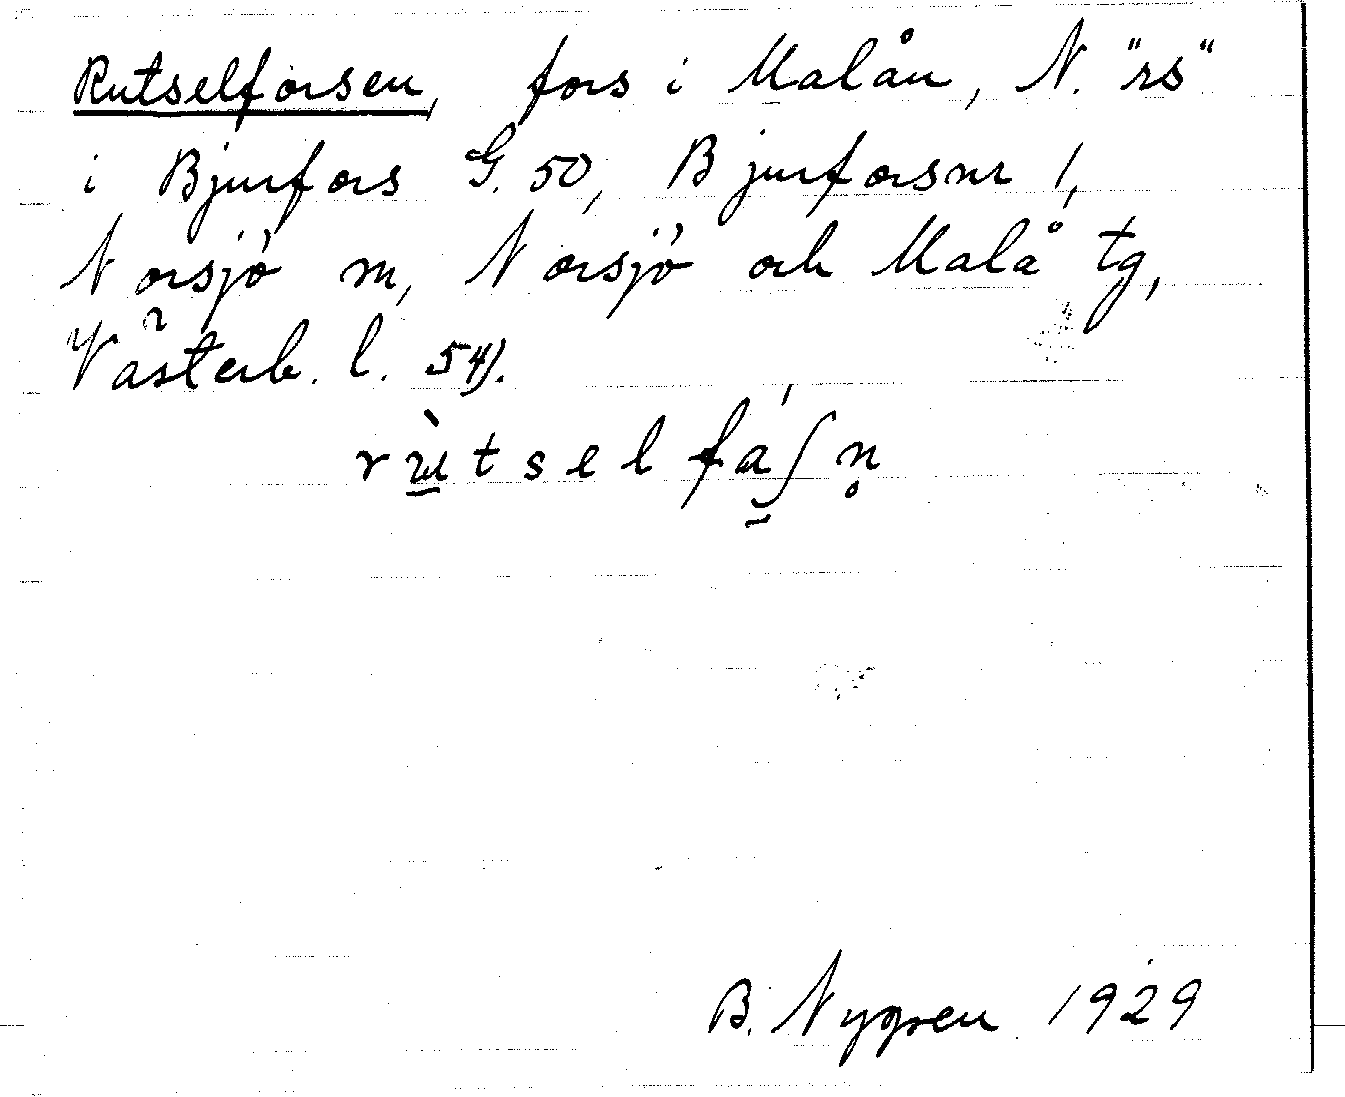 Rutselforsen, fors i Malån, N. "rs"
i Bjurfors G. 50, Bjurforsnr 1,
Norsjö sn, Norsjö och Malå tg,
Västerb. l. 54).
rùtselfáʃn̥
B. Nygren 1929